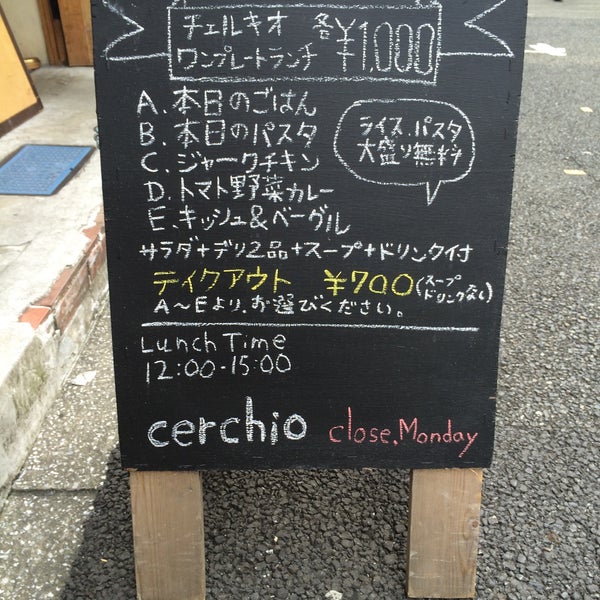 チェルキオ 各
ワンプレートランチ ¥1.000
A. 本日のごはん
B. 本日のパスタ
C. ジャークチキン
D. トマト野菜カレー
E. キッシュ&ベーグル
ライス、パスタ
大盛り無料
サラダ+デリ2品+スープ+ドリンク付
テイクアウト ¥700(スープ
ドリンクなし)
A〜Eより、お選びください。
Lunch Time
12:00-15:00
cerchio close.Monday